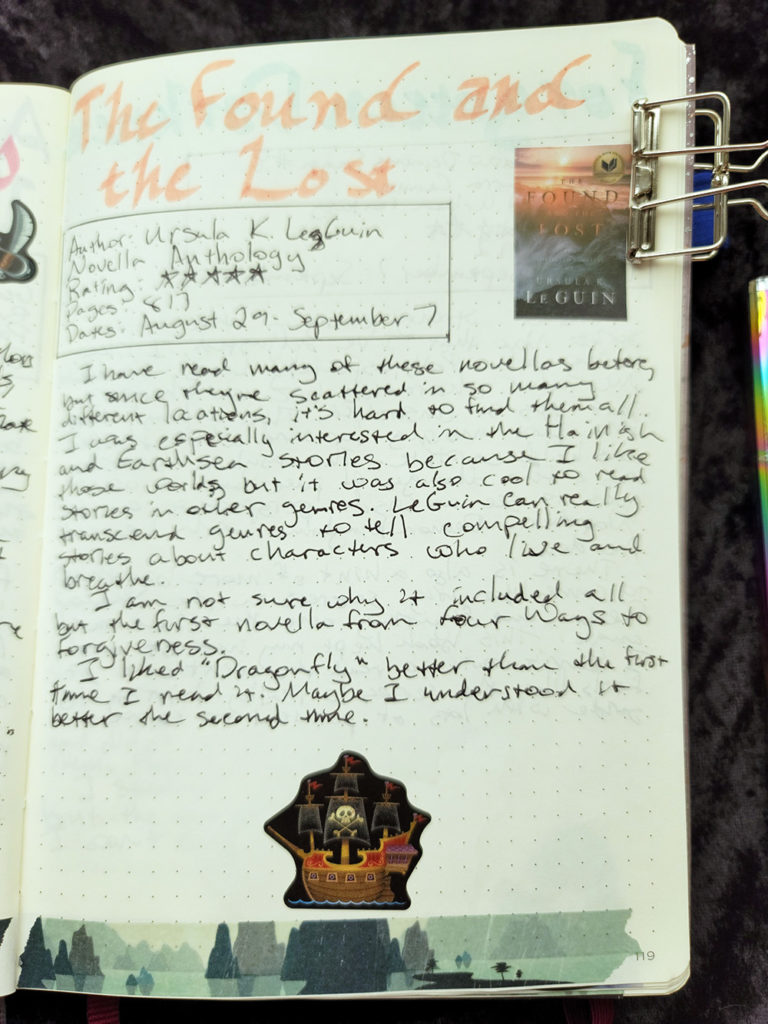 The Found and
the Lost
Author: Ursula K. LeGuin
Novella Anthology
Rating: ★★★★★
Pages: 817
Dates: August 29 - September 7
THE
FOUND
LOST
URSULA K.
LE GUIN
I have read many of these novellas before,
but since they're scattered in so many
different locations, it's hard to find them all.
I was especially interested in the Hainish
and Earthsea stories because I like
those worlds but it was also cool to read
stories in other genres. LeGuin can really
transcend genres to tell compelling
stories about characters who live and
breathe.
I am not sure why it included all
but the first novella from Four Ways to
Forgiveness.
I liked "Dragonfly" better than the first
time I read it. Maybe I understood it
better the second time.
119